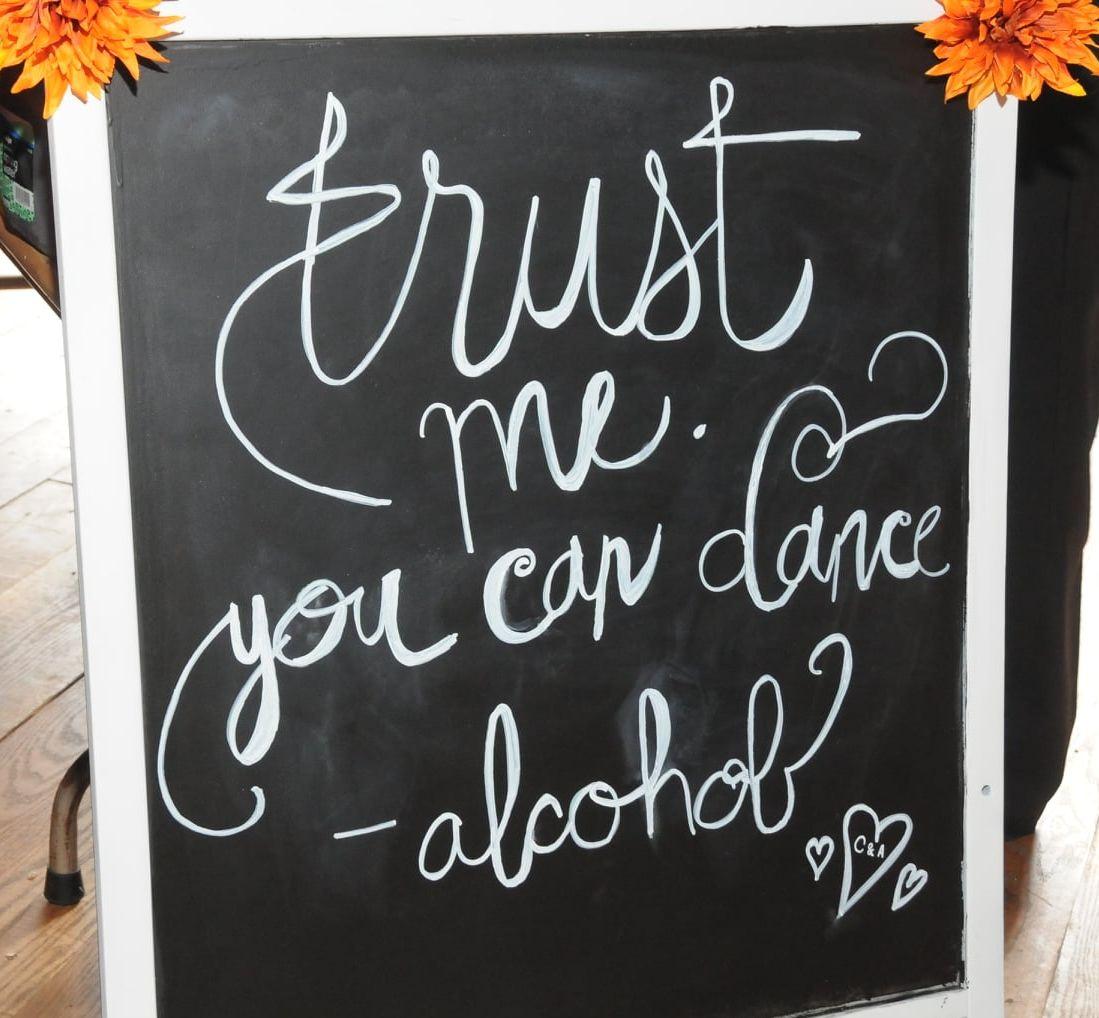 trust
me.
you can dance
- alcohol
C&A